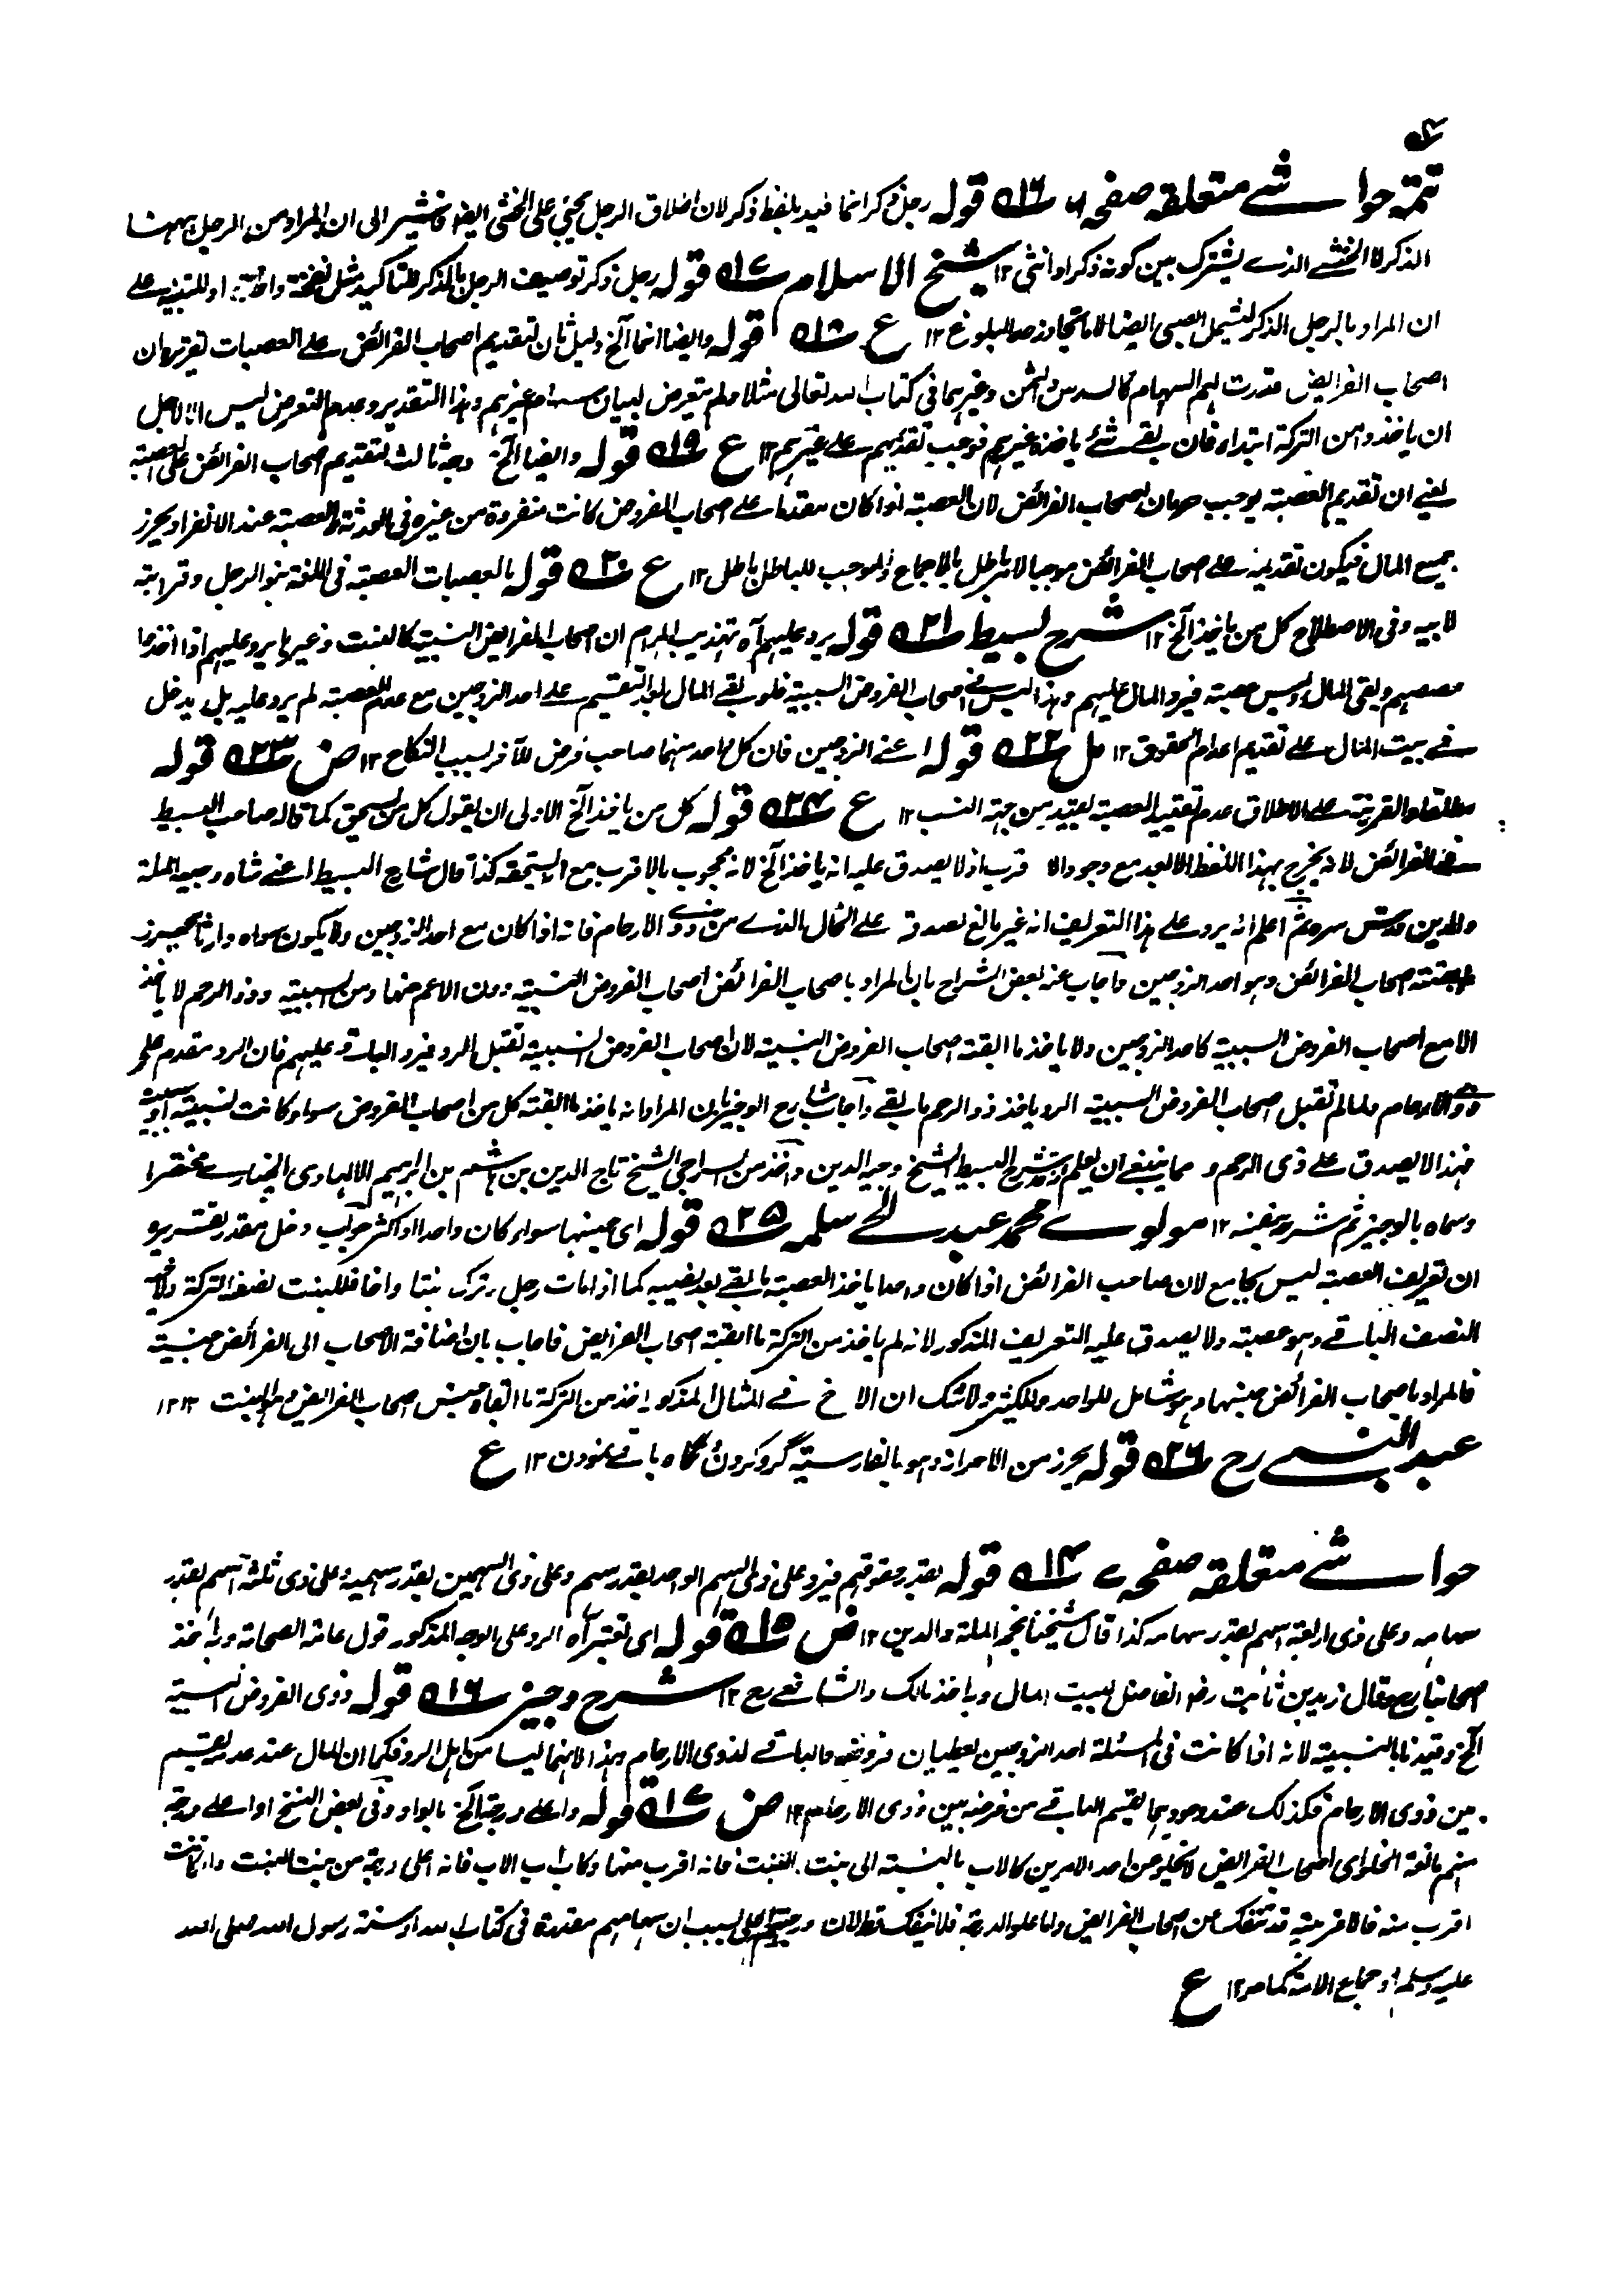 تتمة حواشے متعلقه صفحه ۶ ۱۶ قوله رجل ذكر انما قيد بلفظ ذكر لان اطلاق الرجل يجئ على الخنثى ايضا فاشير الى ان المراد من الرجل ههنا
الذكر لا الخنثے الذے يشترك بين كونه ذكرا وانثى ۱۲ شيخ الاسلام ۱۷ قوله رجل ذكر توصيف الرجل بالذكر للتاكيد مثل نفخة واحدة او للتنبيه علے
ان المراد بالرجل الذكر ليشمل الصبى ايضا لا ما تجاوز حد البلوغ ۱۲ ع ۱۸ قوله وايضا انما آلخ دليل ثان لتقديم اصحاب الفرائض علے العصبات تقريره ان
اصحاب الفرايض قدرت لهم السهام كالسدس والثمن وغيرهما فى كتاب الله تعالى مثلا ولم يتعرض لبيان سهام غيرهم وهذا التقدير وعدم التعرض ليس الا لاجل
ان ياخذوا من التركة ابتداء فان بقے شئ ياخذه غيرهم فوجب تقديمهم علے غيرهم ۱۲ ع ۱۹ قوله وايضا آلخ وجه ثالث لتقديم اصحاب الفرائض على العصبة
يعنے ان تقديم العصبة يوجب حرمان اصحاب الفرائض لان العصبة لو كان مقدما علے اصحاب الفروض كانت منفردة من غيره فى الوراثة والعصبة عند الانفراد يحرز
جميع المال فيكون تقديمه علے اصحاب الفرائض موجبا لامر باطل بالاجماع والموجب للباطل باطل ۱۲ ع ۲۰ قوله بالعصبات العصبة فى اللغة بنو الرجل وقرابته
لابيه وفى الاصطلاح كل من ياخذ آلخ ۱۲ شرح بسيط ۲۱ قوله يرد عليهم آه تهذيب المرام ان اصحاب الفرايض النسبية كالبنت وغيرها يرد عليهم اذا اخذوا
حصصهم وبقى المال وليس عصبة فيرد المال عليهم وهذا ليس فے اصحاب الفروض السببية فلو بقے المال بعد التقسيم علے احد الزوجين مع عدم العصبة لم يرد عليه بل يدخل
فے بيت المال علے تقديم اعدام الحقوق ۱۲ مل ۲۲ قوله اعنے الزوجين فان كل واحد منهما صاحب فرض للآخر بسبب النكاح ۱۲ ض ۲۳ قوله
مطلقا والقرينة علے الاطلاق عدم تقييد العصبة بقيد من جهة النسب ۱۲ ع ۲۴ قوله كل من ياخذ آلخ الاولى ان يقول كل من يستحق كما قاله صاحب البسيط
فے الفرائض لانه يخرج بهذا اللفظ الابعد مع وجود الاقرب اذ لا يصدق عليه انه ياخذ آلخ لانه محجوب بالاقرب مع انه يستحقه كذا قال شارح البسيط اعنے شاه وجيه الملة
والدين قدس سره ثم اعلم انه يرد على هذا التعريف انه غير مانع لصدقه علے الخال الذے من ذوى الارحام فانه اذا كان مع احد الزوجين ولا يكون سواه وارثا يحرز
ما ابقته اصحاب الفرائض وهو احد الزوجين واجاب عنه بعض الشراح بان المراد باصحاب الفرائض اصحاب الفروض النسبية دون الاعم منها ومن السببية وذو الرحم لا ياخذ
الا مع اصحاب الفروض السببية كاحد الزوجين ولا ياخذ ما ابقته اصحاب الفروض النسبية لان اصحاب الفروض النسبية تقبل الرد فيرد الباقے عليهم فان الرد مقدم على
ذوى الارحام ولما لم تقبل اصحاب الفروض السببية الرد ياخذ ذو الرحم ما بقے واجاب شارح الوجيز بان المراد انه ياخذ ما ابقته كل من اصحاب الفروض سواء كانت نسبية او سببية
فهذا لا يصدق على ذى الرحم و مما ينبغے ان يعلم ان شرح البسيط للشيخ وجيه الدين واخذ من السراجى الشيخ تاج الدين بن هاشم بن ابراهيم مختصرا
وسماه بالوجيز ثم شرحه بنفسه ۱۲ مولوے محمد عبد الحے سلمه ۲۵ قوله اى جنسها سواء كان واحدا او اكثر جواب دخل مقدر تقريره
ان تعريف العصبة ليس بجامع لان صاحب الفرائض اذا كان واحدا ياخذ العصبة ما بقے بعد نصيبه كما اذا مات رجل وترك بنتا واخا فللبنت نصف التركة وللاخ
النصف الباقے وهو عصبة ولا يصدق عليه التعريف المذكور لانه لم ياخذ من التركة ما ابقته اصحاب الفرايض فاجاب بان اضافة الاصحاب الى الفرائض جنسية
فالمراد باصحاب الفرائض جنسها وهو شامل للواحد والكثير ولا شك ان الاخ فے المثال المذكور اخذ من التركة ما ابقاه جنس اصحاب الفرايض وهو البنت ۱۲
عبد النبے رح ۲۶ قوله يحرز من الاحراز وهو بالفارسية گرد كردن و نگاه باقے نمودن ۱۲ ع
حواشے متعلقه صفحه ۷ ۱۴ قوله بقدر حقوقهم فيرد على ذى السهم الواحد بقدر سهم وعلى ذى السهمين بقدر سهميه وعلى ذى ثلثة اسهم بقدر
سهامه وعلى ذى اربعة اسهم بقدر سهامه كذا قال شيخنا نجم الملة والدين ۱۲ ض ۱۵ قوله اى تعتبر آه الرد على الوجه المذكور قول عامة الصحابة وبه اخذ
اصحابنا رح وقال زيد بن ثابت رضى الفاضل لبيت المال وبه اخذ مالك والشافعے رح ۱۲ شرح وجيز ۱۶ قوله ذوى الفروض النسبية
آلخ وقيدنا بالنسبية لانه اذا كانت فى المسئلة احد الزوجين يعطيان فروضه والباقے لذوى الارحام وهذا لانهما ليسا من اهل الرد فكما ان المال عند عدمه يقسم
بين ذوى الارحام فكذلك عند وجودهما يقسم الباقے من فرضه بين ذوى الارحام ۱۲ ض ۱۷ قوله واعلے درجة آلخ بالواو وفى بعض النسخ او اعلے درجة
منهم مانعة الخلو اى اصحاب الفرايض لا يخلو عن احد الامرين كالاب بالنسبة الى بنت البنت فانه اقرب منها وكاب اب الاب فانه اعلى درجة من بنت البنت وان كانت
اقرب منه فالاقربية قد تنفك عن اصحاب الفرايض واما علو الدرجة فلا ينفك قط لان درجتهم اعلى بسبب ان سهامهم مقدرة فى كتاب الله او سنة رسول الله صلى الله
عليه وسلم او اجماع الامة كما مر ۱۲ ع